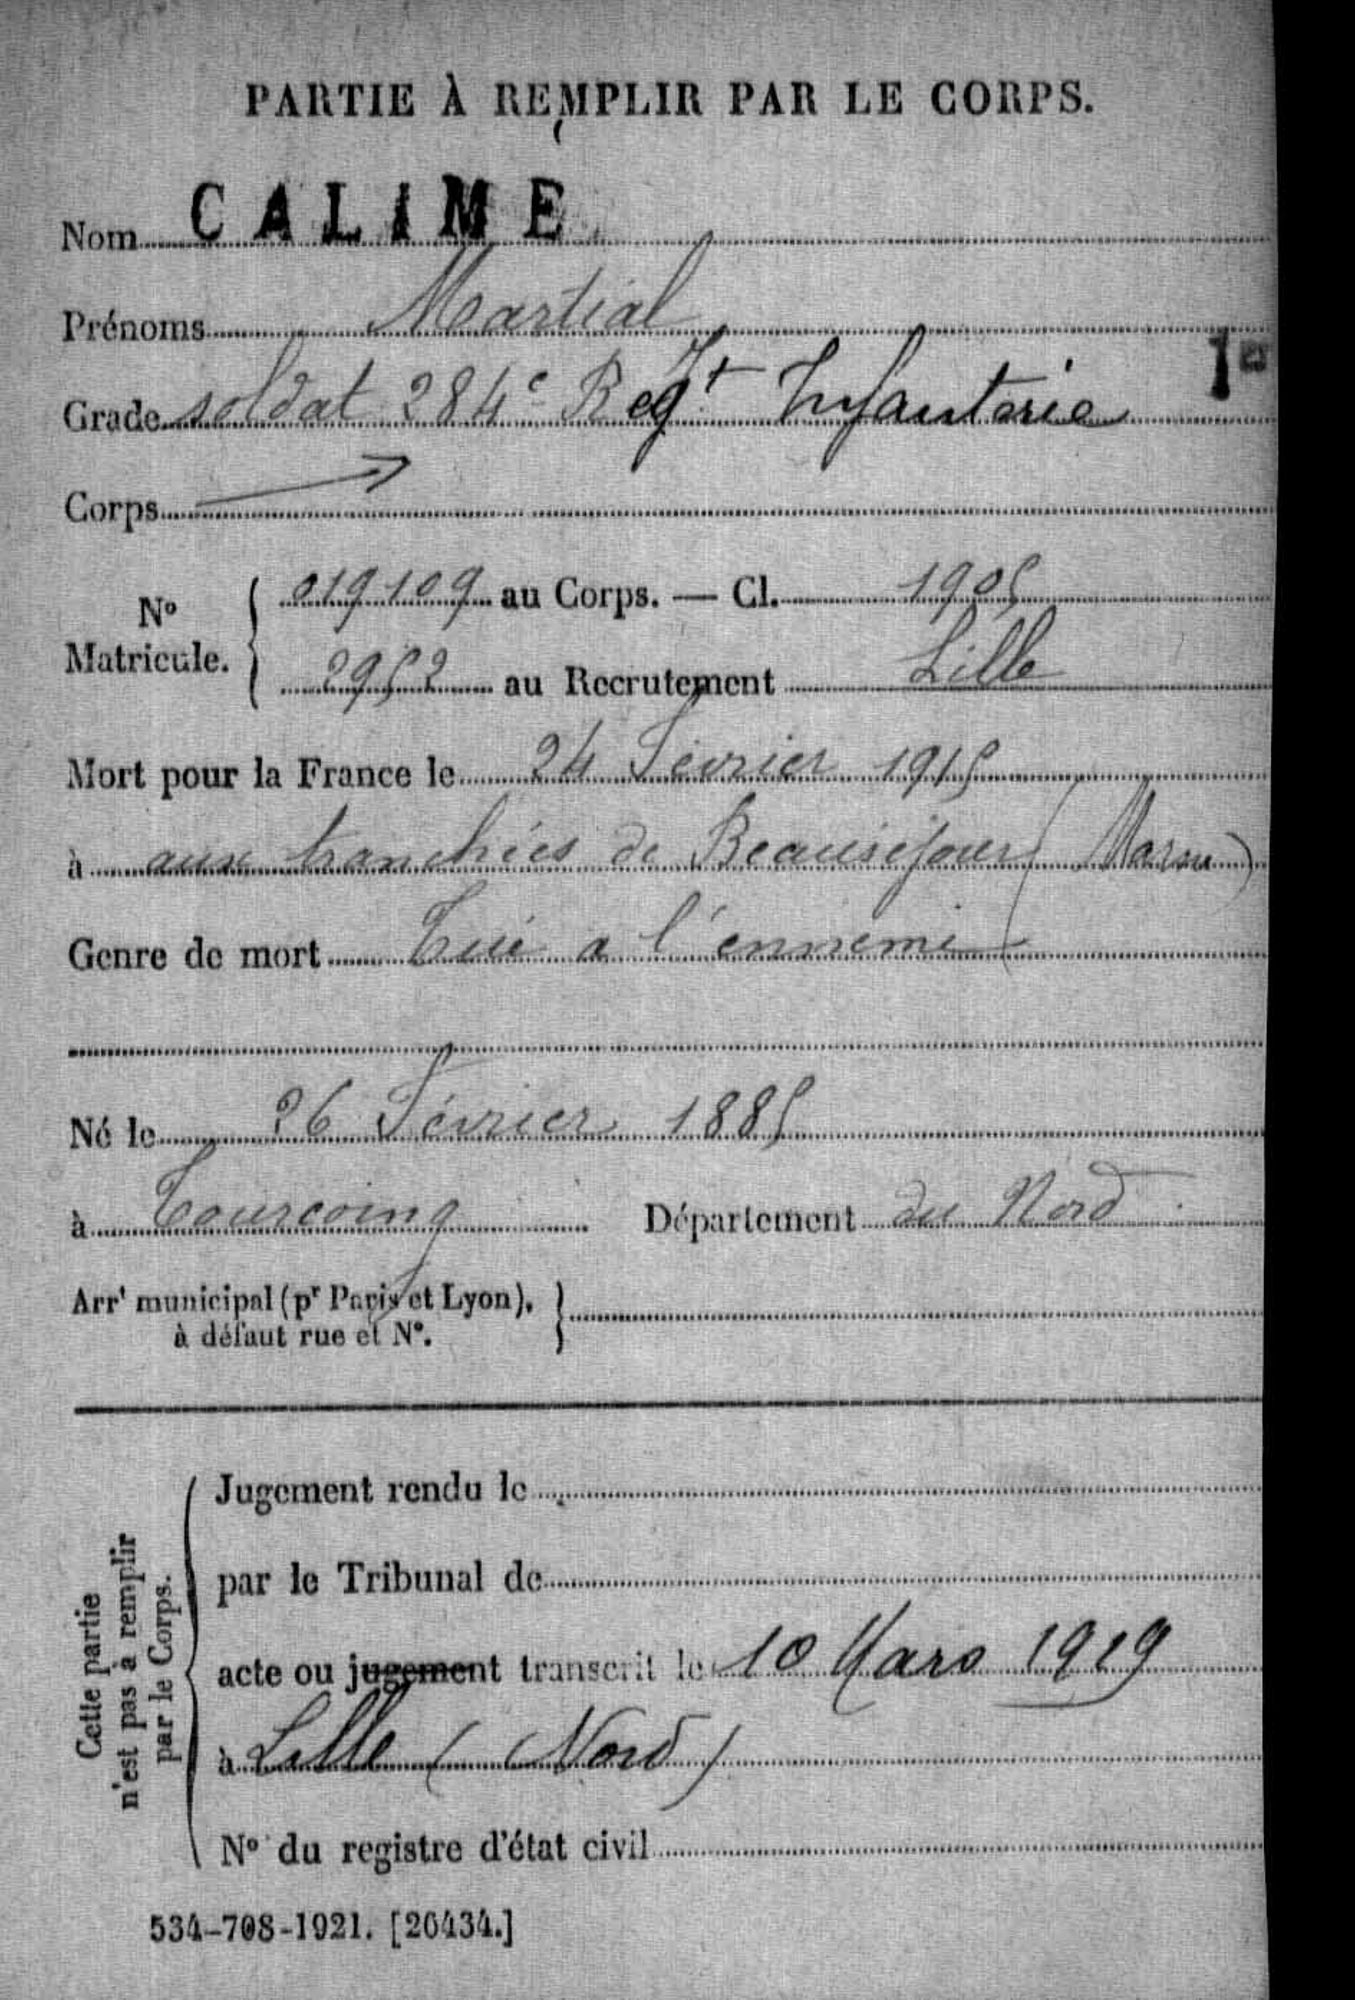 PARTIE À REMPLIR PAR LE CORPS.
Nom CALIME
Prénoms Martial
1er
Grade soldat 284e Regt Infanterie
Corps
No Matricule. { 019109 au Corps. — Cl. 1905
2952 au Recrutement Lille
Mort pour la France le 24 Février 1915
à aux tranchées de Beauséjour (Marne)
Genre de mort Tué a l'ennemi
Né le 26 Février 1885
à Tourcoing Département du Nord
Arrt municipal (pr Paris et Lyon), }
à défaut rue et No.
Cette partie
n'est pas à remplir
par le Corps.
Jugement rendu le
par le Tribunal de
acte ou jugement transcrit le 10 Mars 1919
à Lille (Nord)
No du registre d'état civil
534-708-1921. [26434.]